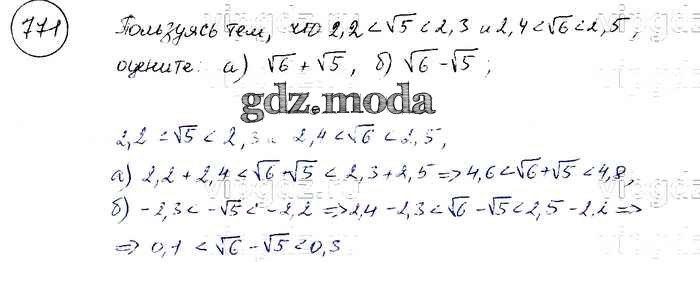 771 Пользуясь тем, что 2,2 < √5 < 2,3 и 2,4 < √6 < 2,5,
оцените: а) √6 + √5, б) √6 - √5;
gdz.moda
2,2 < √5 < 2,3 и 2,4 < √6 < 2,5,
а) 2,2 + 2,4 < √6 + √5 < 2,3 + 2,5 => 4,6 < √6 + √5 < 4,8,
б) -2,3 < -√5 < -2,2 => 2,4 - 2,3 < √6 - √5 < 2,5 - 2,2 =>
=> 0,1 < √6 - √5 < 0,3